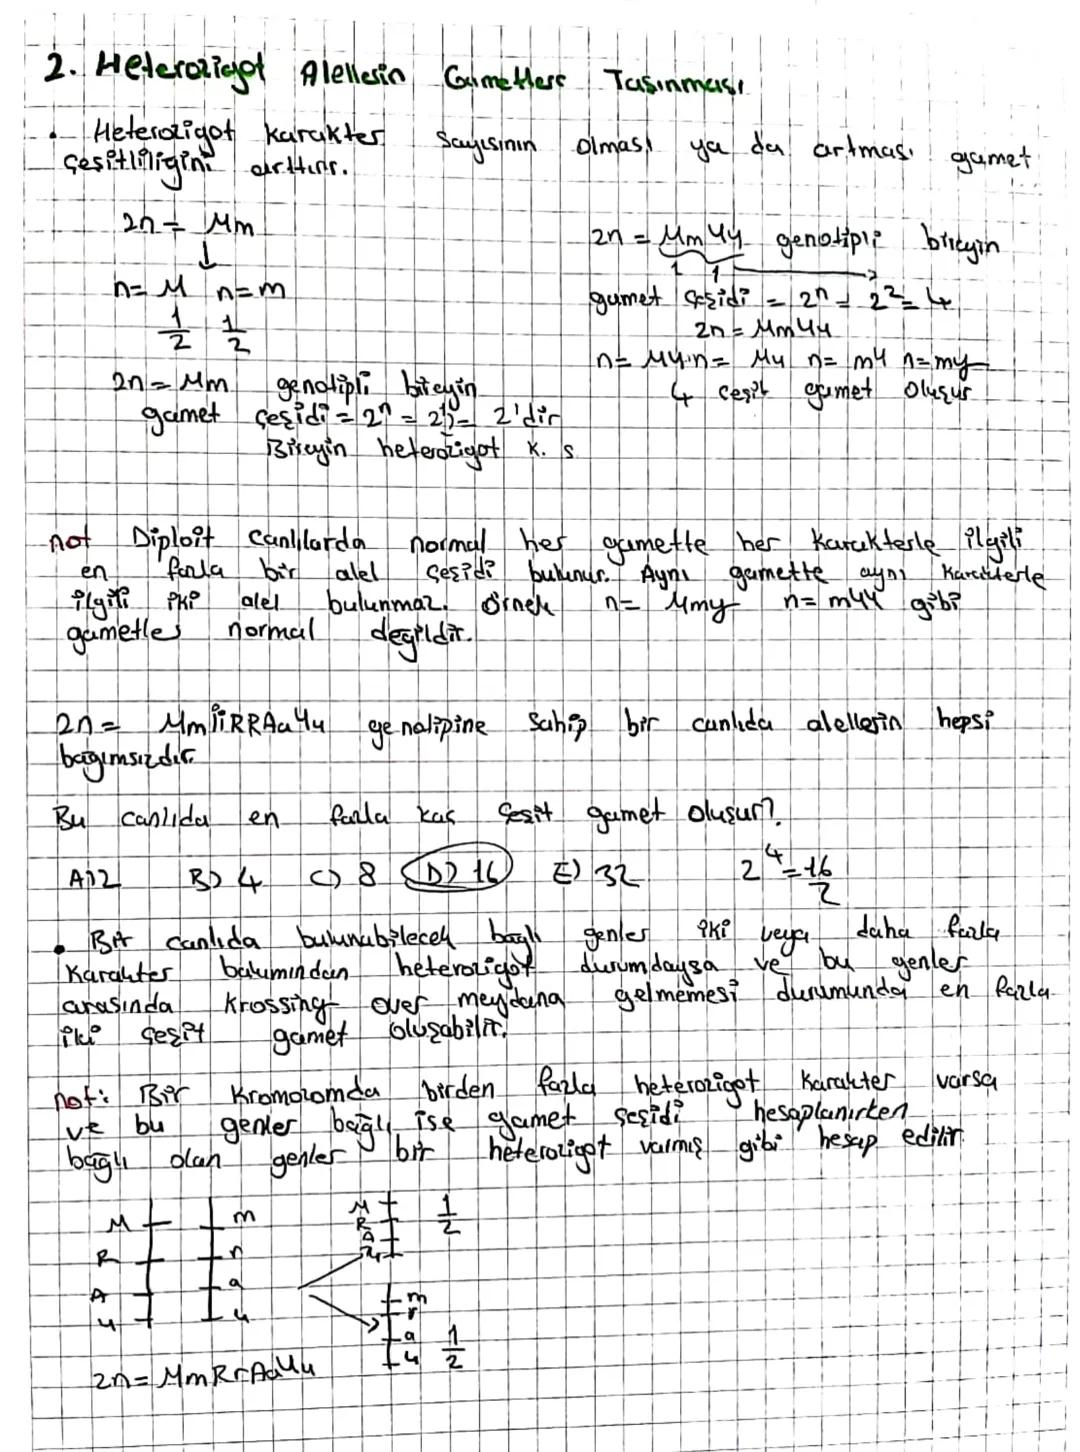 2. Heterozigot Alellerin Gametlere Taşınması
• Heterozigot karakter sayısının olması ya da artması gamet
çeşitliliğini arttırır.
2n = Mm
↓
n= M n=m
1/2 1/2
2n = Mm genotipli bireyin
gamet çeşidi = 2ⁿ = 2¹ = 2'dir
Bireyin heterozigot K. s
2n = MmYy genotipli bireyin
1 1
gamet çeşidi = 2ⁿ = 2² = 4
2n = MmYy
n= MY n= My n= mY n=my
4 çeşit gamet oluşur
not Diploit canlılarda normal her gamette her karakterle ilgili
en fazla bir alel çeşidi bulunur. Aynı gamette aynı karakterle
ilgili iki alel bulunmaz. Örnek n= Mmy n= mYY gibi
gametler normal değildir.
2n= MmİiRRAaYy genotipine sahip bir canlıda alellerin hepsi
bağımsızdır.
Bu canlıda en fazla kaç çeşit gamet oluşur?
A)2 B) 4 C) 8 D) 16 E) 32 2⁴=16
• Bir canlıda bulunabilecek bağlı genler iki veya daha fazla
Karakter bakımından heterozigot durumdaysa ve bu genler
arasında Krossing over meydana gelmemesi durumunda en fazla
iki çeşit gamet oluşabilir.
not: Bir Kromozomda birden fazla heterozigot Karakter varsa
ve bu genler bağlı ise gamet çeşidi hesaplanırken
bağlı olan genler bir heterozigot varmış gibi hesap edilir.
M m
R r
A a
Y y
M
R
A
1/2
m
r
a
y
1/2
2n= MmRrAaYy